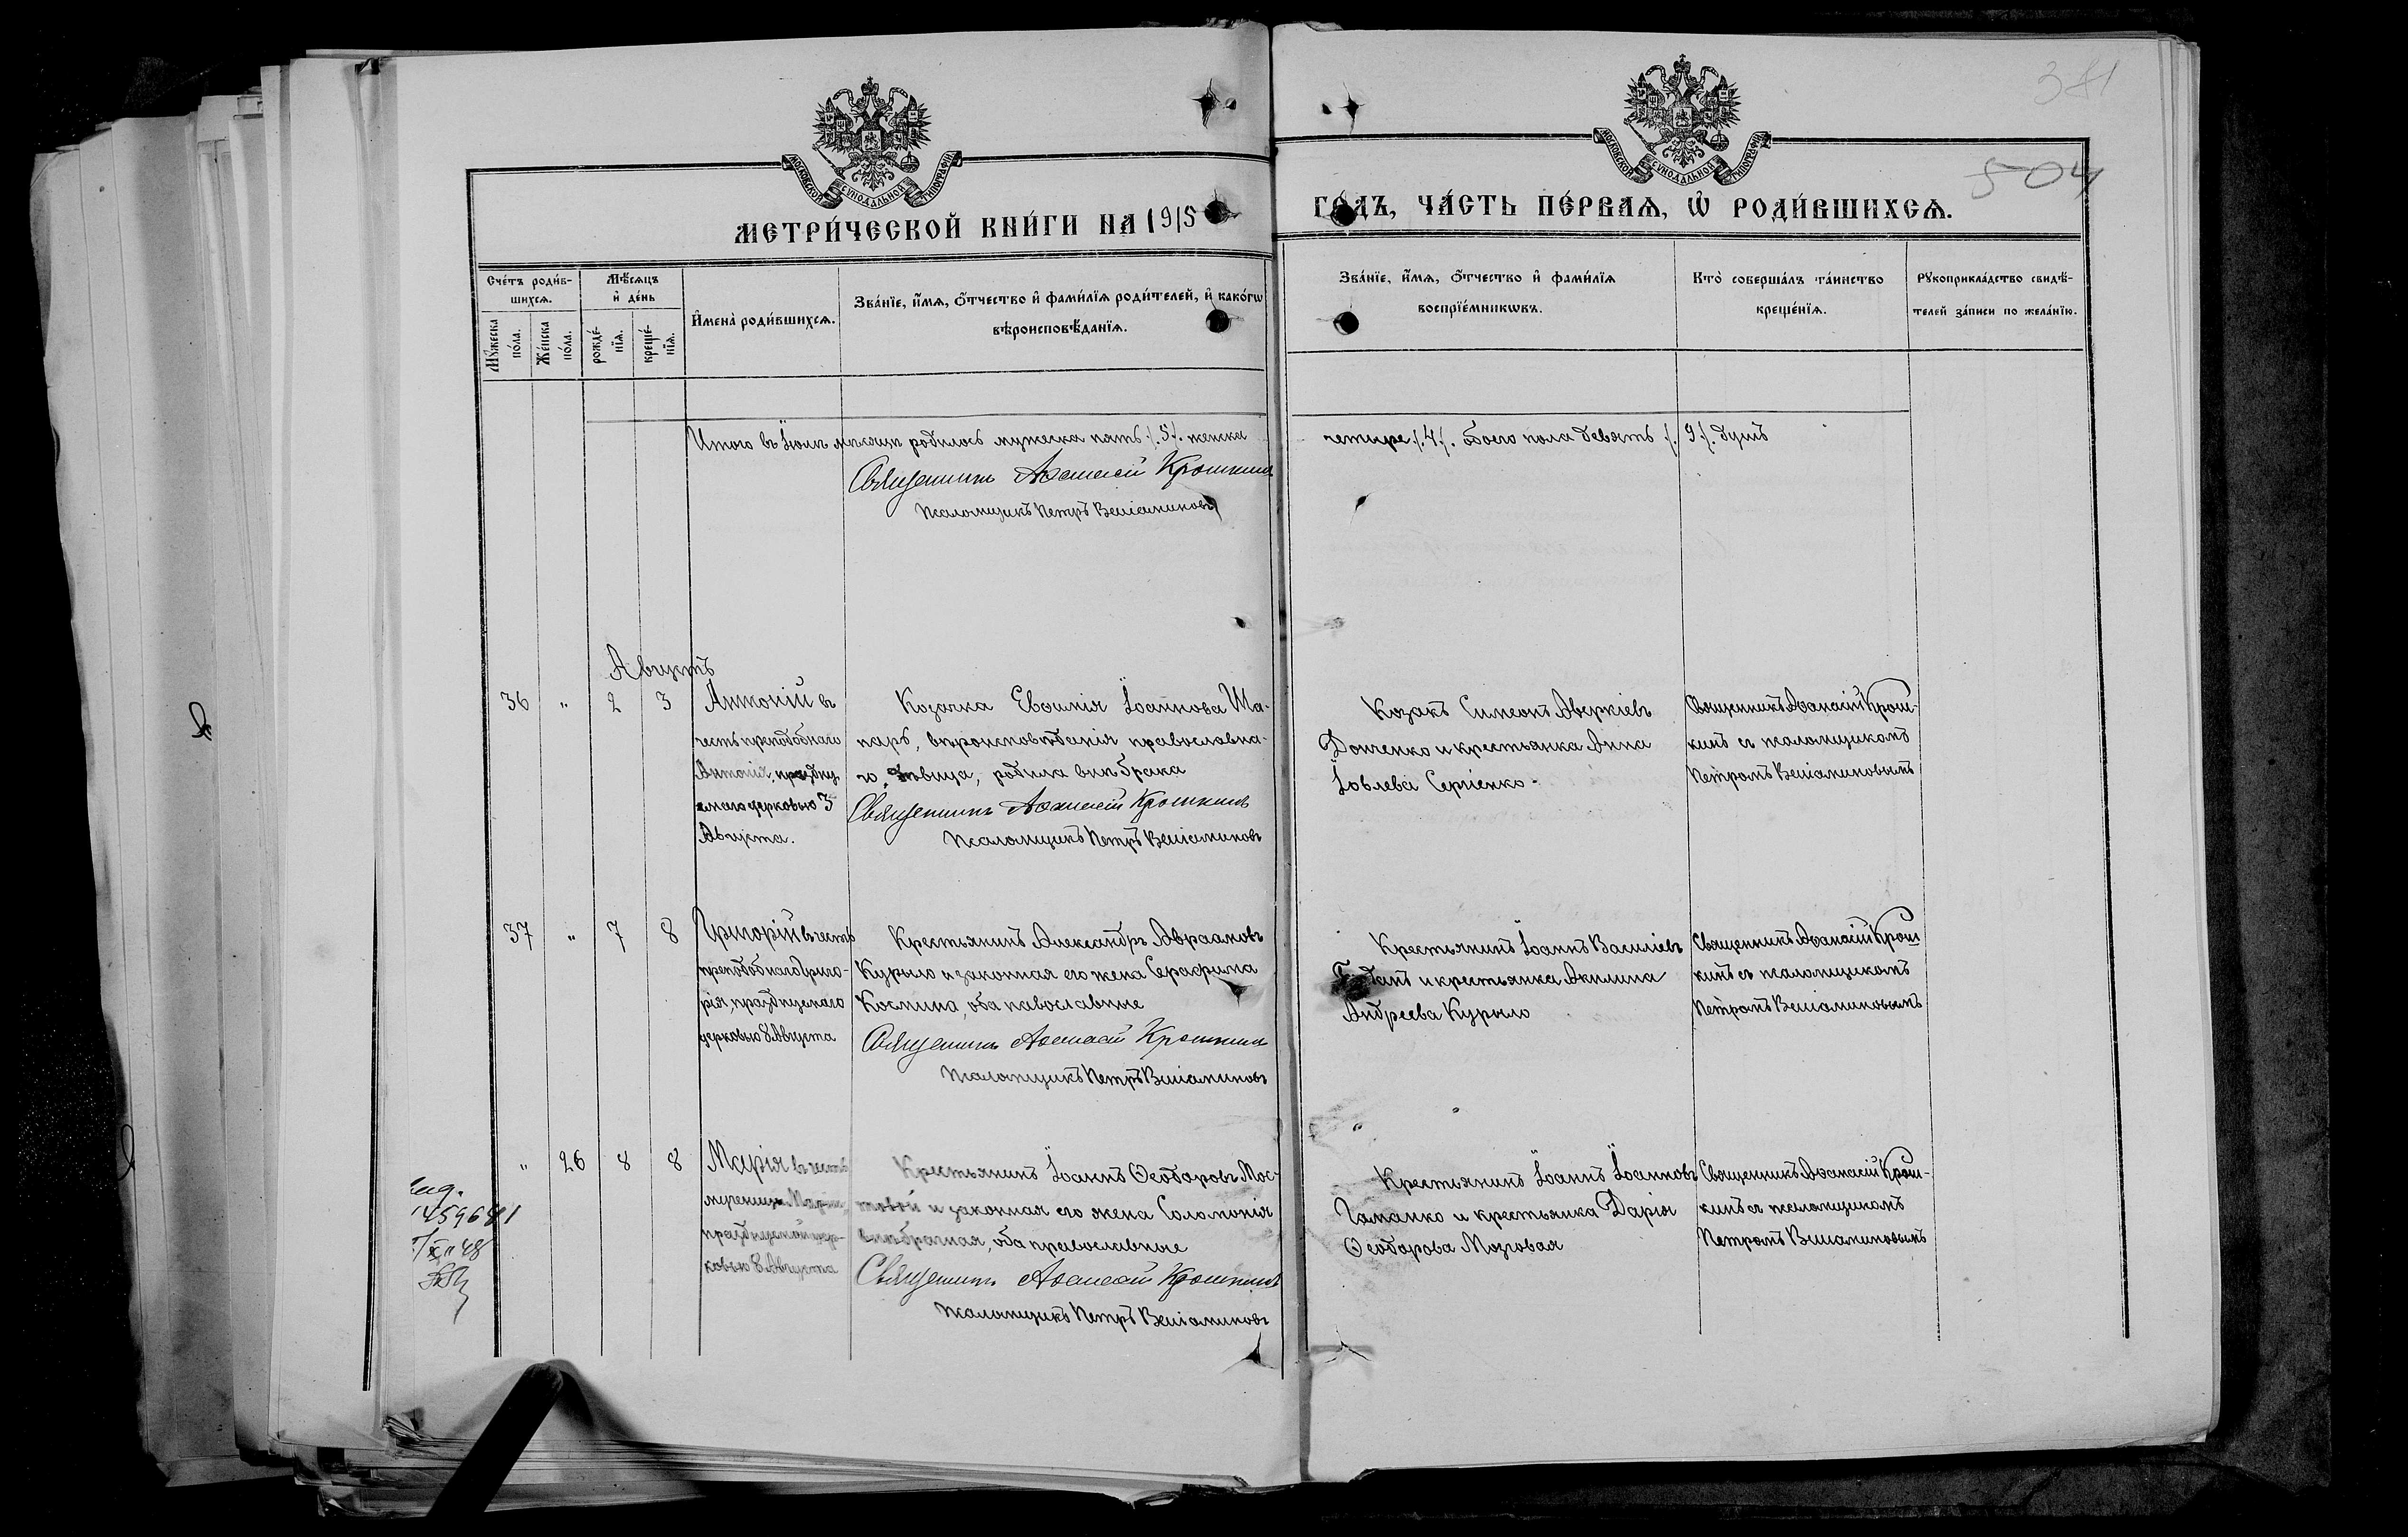 381
504
МОСКОВСКОЙ СѴНОДАЛЬНОЙ ТИПОГРАФІИ
МОСКОВСКОЙ СѴНОДАЛЬНОЙ ТИПОГРАФІИ
МЕТРИ́ЧЕСКОЙ КНИ́ГИ НА 1915
ГО́ДЪ, ЧА́СТЬ ПЕ́РВАѦ, Ѡ҆ РОДИ́ВШИХСѦ.
Сче́тъ роди́в-
шихсѧ.
Мꙋ́жеска
по́ла.
Же́нска
по́ла.
Мѣ́сѧцъ
и҆ де́нь
рожде́-
нїѧ.
креще́-
нїѧ.
И҆мена̀ роди́вшихсѧ.
Зва́нїе, и҆́мѧ, ѻ҆́тчество и҆ фами́лїѧ роди́телей, и҆ како́гѡ
вѣроисповѣ́данїѧ.
Зва́нїе, и҆́мѧ, ѻ҆́тчество и҆ фами́лїѧ
воспрїе́мникѡвъ.
Кто̀ соверша́лъ та́инство
креще́нїѧ.
Рꙋкоприкла́дство свидѣ́-
телей за́писи по жела́нїю.
Итого въ Іюлѣ мѣсяцѣ родилось мужеска пять /.5/. женска
четыре /.4/. Обоего пола девять /.9/. душъ
Священникъ Аѳанасій Крошкинъ
Псаломщикъ Петръ Веніаминовъ
Августъ
36 " 2 3
Антоній въ
честь преподобнаго
Антонія, праздну
емаго церковью 3
Августа.
Козачка Евѳимія Іоаннова Ша-
паръ, вѣроисповѣданія православна-
го, дѣвица, родила внѣ брака
Священникъ Аѳанасій Крошкинъ
Псаломщикъ Петръ Веніаминовъ
Козакъ Симеонъ Аверкіевъ
Донченко и крестьянка Анна
Іовлева Сергіенко
Священникъ Аѳанасій Крош-
кинъ съ псаломщикомъ
Петромъ Веніаминовымъ
37 " 7 8
Григорій въ честь
преподобнаго Григо-
рія, празднуемаго
церковью 8 Августа
Крестьянинъ Александръ Авраамовъ
Курыло и законная его жена Серафима
Космина, оба павославные
Священникъ Аѳанасій Крошкинъ
Псаломщикъ Петръ Веніаминовъ
Крестьянинъ Іоаннъ Василіевъ
и крестьянка Акилина
Андреева Курыло
Священникъ Аѳанасій Крош
кинъ съ псаломщикомъ
Петромъ Веніаминовымъ
" 26 8 8
Марія въ честь
мученицы Маріи,
празднуемой цер-
ковью 8 Августа
Крестьянинъ Іоаннъ Ѳеодоровъ Мос-
товой и законная его жена Соломонія
оба православные
Священникъ Аѳанасій Крошкинъ
Псаломщикъ Петръ Веніаминовъ
Крестьянинъ Іоаннъ Іоанновъ
Гаманко и крестьянка Дарія
Ѳеодорова Мозговая
Священникъ Аѳанасій Крош-
кинъ съ псаломщикомъ
Петромъ Веніаминовымъ